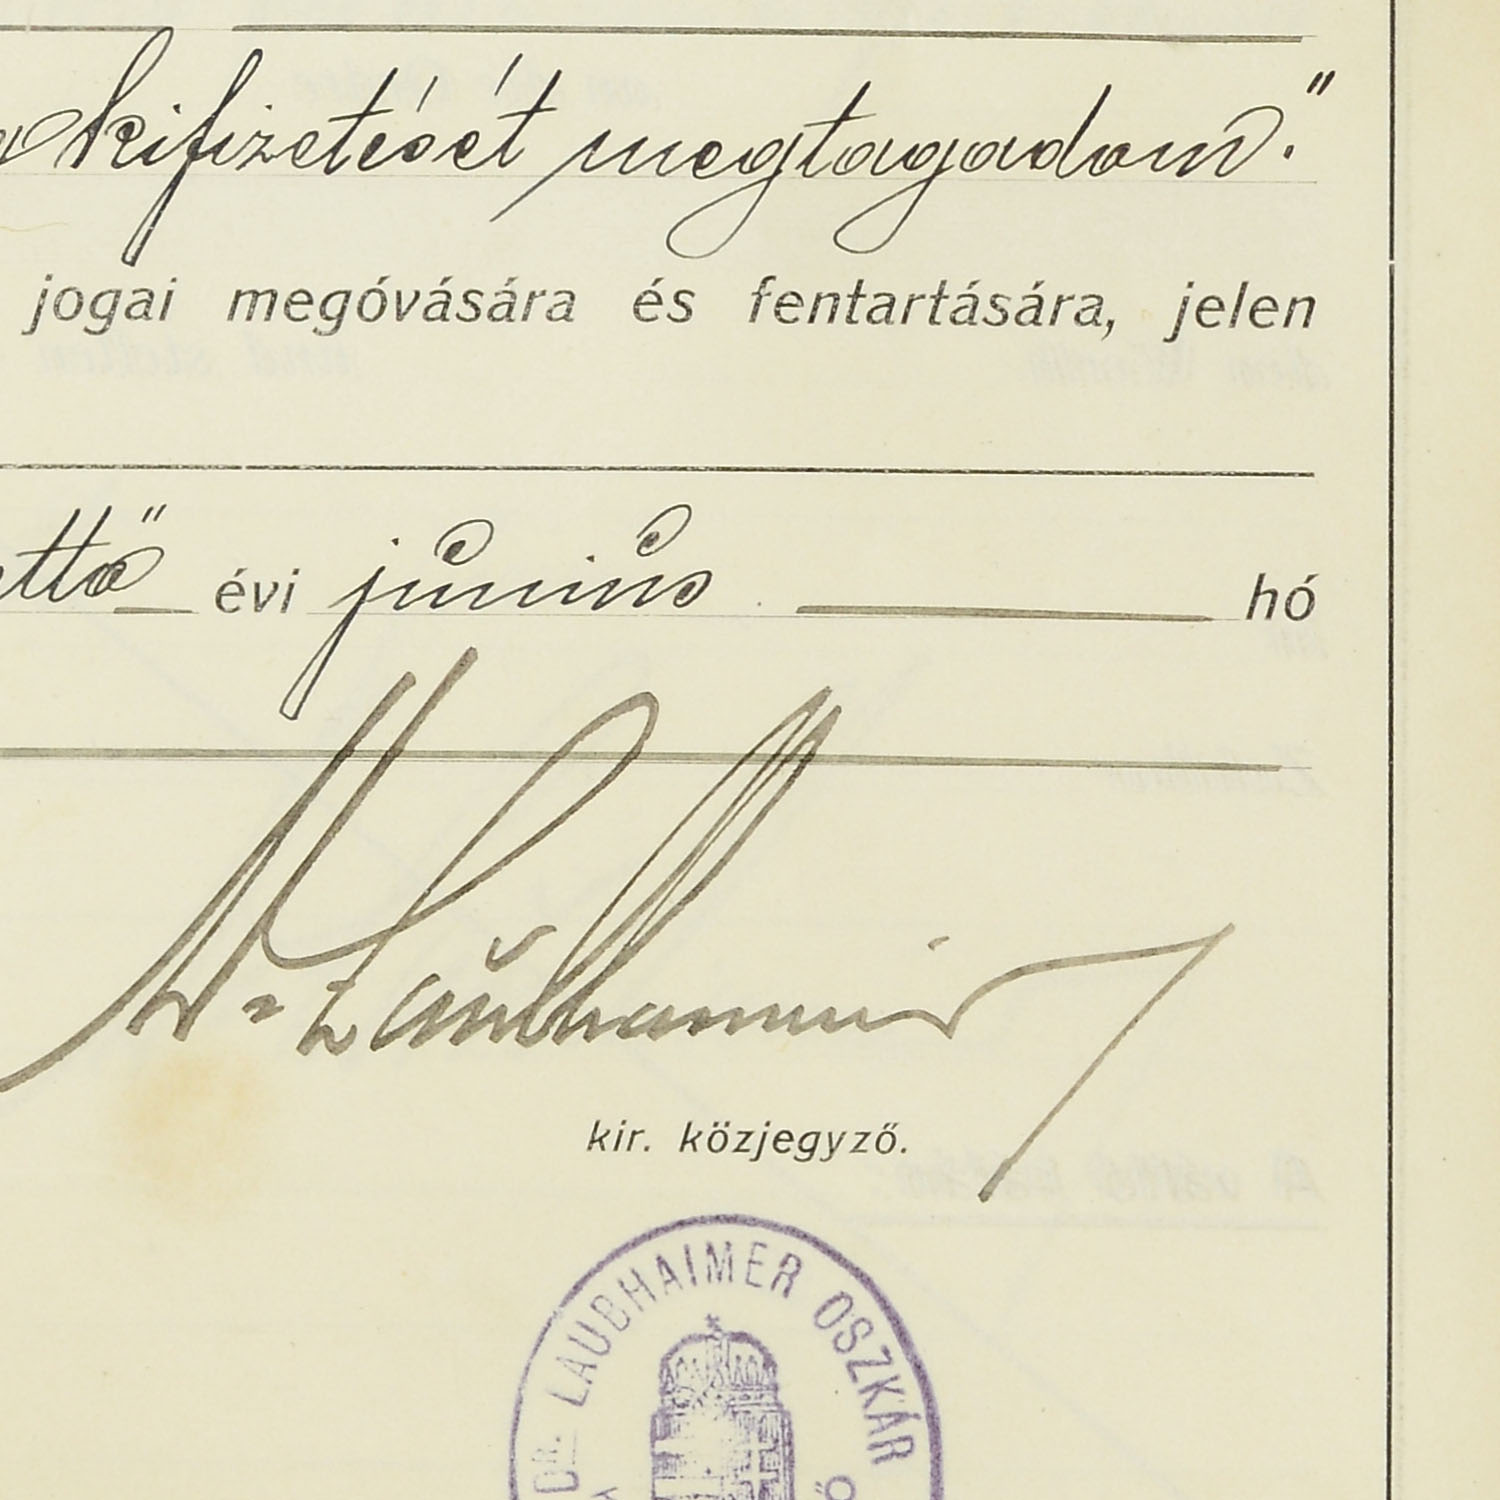 kifizetését megtagadom."
jogai megóvására és fentartására, jelen
ettő évi június hó
Dr Laubhaimer
kir. közjegyző.
DR. LAUBHAIMER OSZKÁR